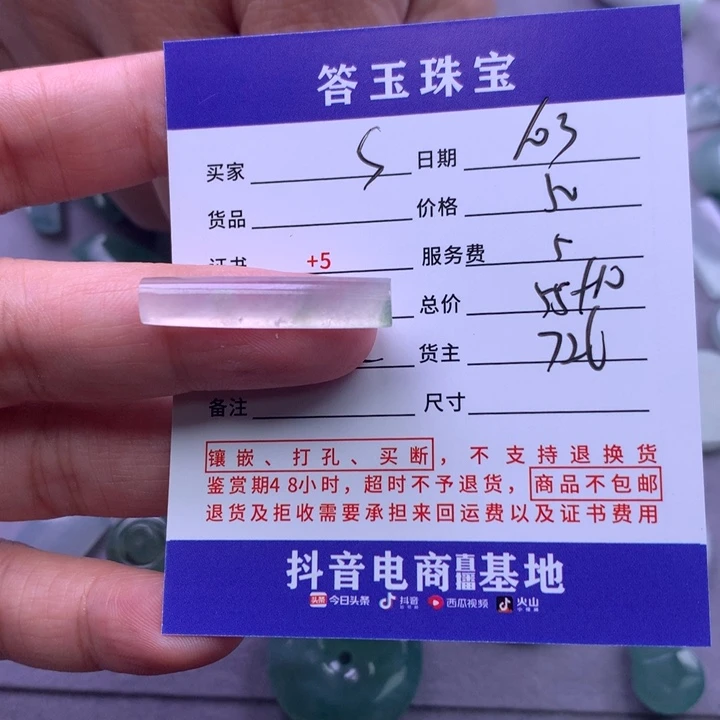 答玉珠宝
买家 S 日期 103
货品 价格 50
证书 +5 服务费 5
总价 55+10
货主 726
备注 尺寸
镶嵌、打孔、买断，不支持退换货
鉴赏期48小时，超时不予退货，商品不包邮
退货及拒收需要承担来回运费以及证书费用
抖音电商直播基地
头条 今日头条 抖音 西瓜视频 火山